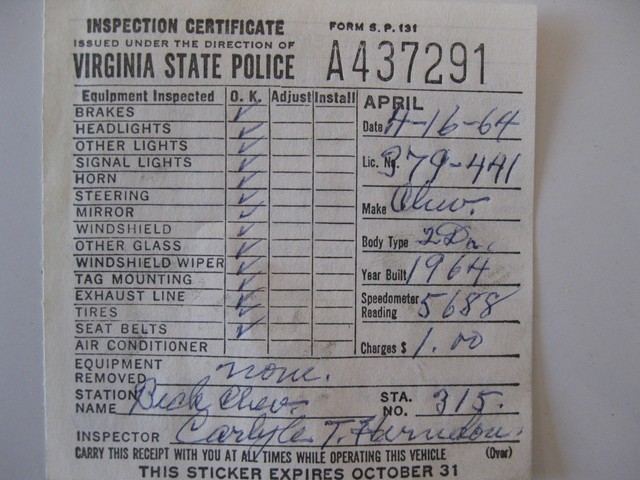 INSPECTION CERTIFICATE FORM S. P. 131
ISSUED UNDER THE DIRECTION OF
VIRGINIA STATE POLICE A437291
Equipment Inspected O. K. Adjust Install APRIL
BRAKES ✓
HEADLIGHTS ✓ Date 4-16-64
OTHER LIGHTS ✓
SIGNAL LIGHTS ✓ Lic. No. 379-441
HORN ✓
STEERING ✓
MIRROR ✓ Make Chev.
WINDSHIELD ✓
OTHER GLASS ✓ Body Type 2 Dr.
WINDSHIELD WIPER ✓
TAG MOUNTING ✓ Year Built 1964
EXHAUST LINE ✓ Speedometer
TIRES ✓ Reading 5688
SEAT BELTS ✓
AIR CONDITIONER Charges $ 1.00
EQUIPMENT
REMOVED none.
STATION STA.
NAME Chev. NO. 315.
INSPECTOR Carlyle T. Herndon
CARRY THIS RECEIPT WITH YOU AT ALL TIMES WHILE OPERATING THIS VEHICLE (Over)
THIS STICKER EXPIRES OCTOBER 31